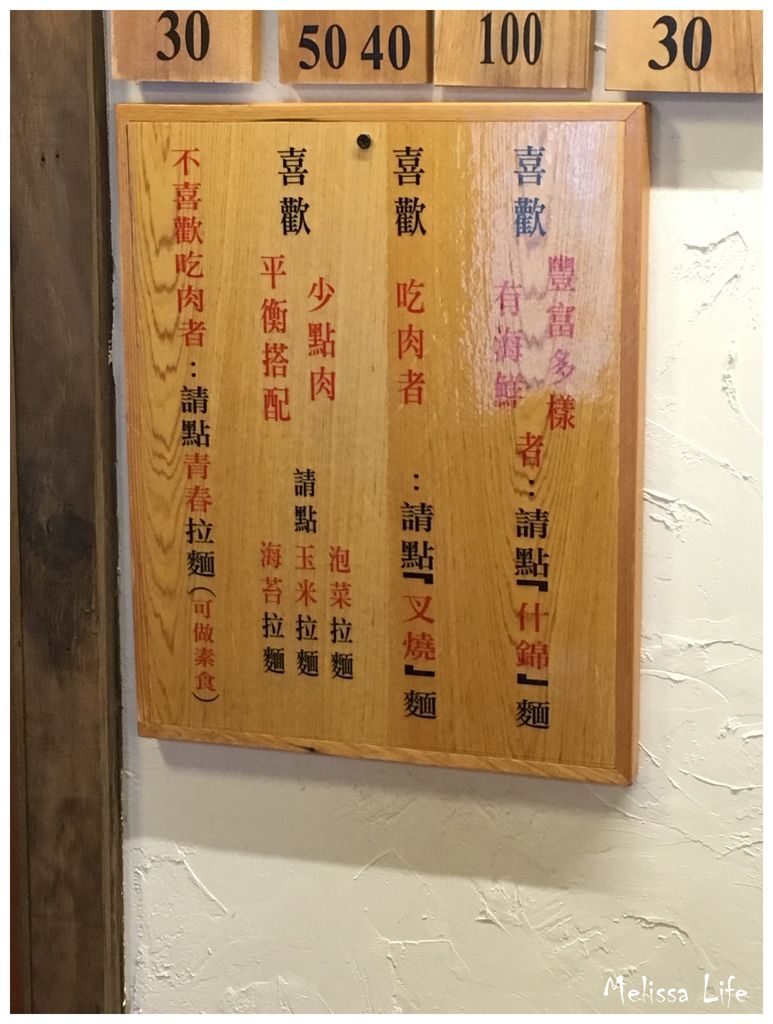 30
50 40
100
30
喜歡
豐富多樣
有海鮮
者：請點『什錦』麵
喜歡 吃肉者：請點『叉燒』麵
喜歡
少點肉
平衡搭配
請點
泡菜拉麵
玉米拉麵
海苔拉麵
不喜歡吃肉者：請點青春拉麵（可做素食）
Melissa Life